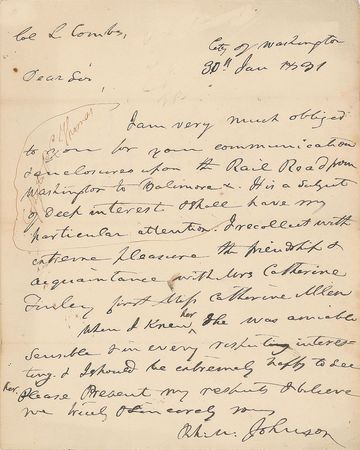 Col L Combs,
City of Washington
30th Jan 1831
Dear Sir,
I am very much obliged
to you for your communication
& enclosures upon the Rail Road from
Washington to Baltimore &. It is a subject
of deep interest & shall have my
particular attention. I recollect with
extreme pleasure the friendship &
acquaintance with Mrs Catherine
Finley first Miss Catherine Allen
When I knew her she was amiable
sensible & in every respect interes-
ting. & I should be extremely happy to see
her. Please present my respects & believe
me truly & sincerely yours
Rh. M. Johnson
Thomas